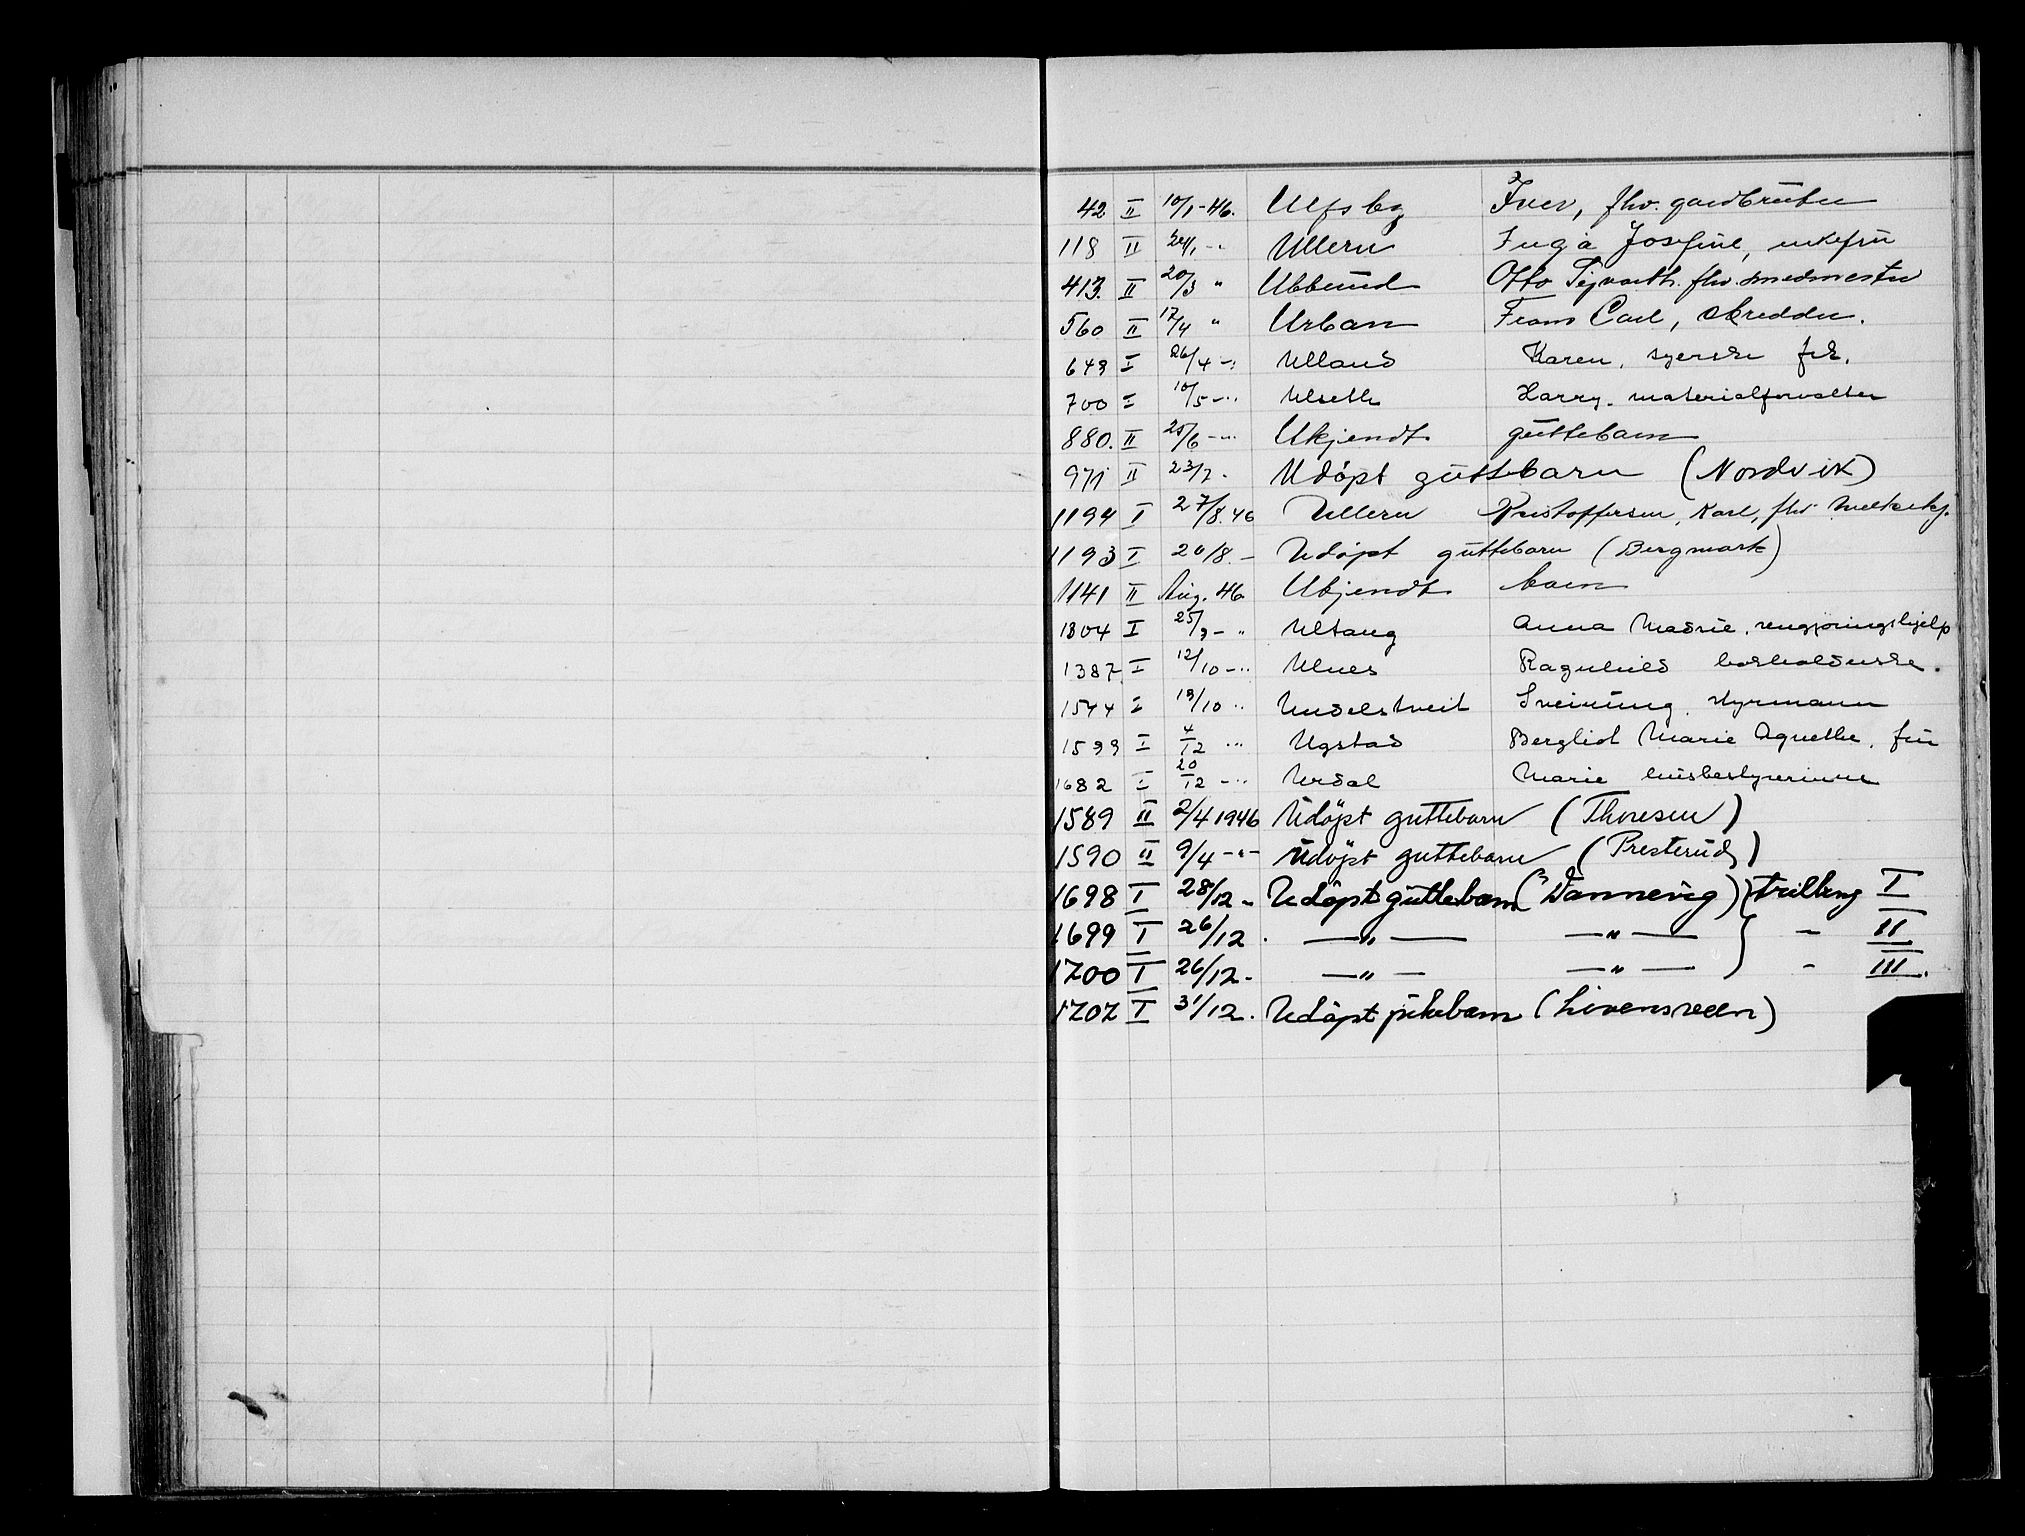 42 II 10/1-46. Ulfsby Iver, fhv. gardbruker
118 II 24/1 -" Ullern Inga Josefine, enkefru
413. II 20/3 " Ubbund Otto Sigvarth. fhv. smedmester
560 II 17/4 " Urban Frans Carl, skredder.
649 I 26/4 -" Ulland Karen, syerske frk.
700 I 10/5 -" Ulseth Harry. materialforvalter
880. II 25/6 -" Ukjendt guttebarn
971 II 23/7 - Udöpt guttebarn (Nordvik)
1194 I 27/8.46 Ullern Kristoffersen, Karl, fhv.
1193 I 20/8. - Udöpt guttebarn (Bergmark)
1141 II Aug. 46 Ukjendt barn
1304 I 25/9 - " Ultang Anna Madsie, rengjøringshjelp
1387 I 12/10 -" Ulnes Ragnhild husholderske.
1544 I 19/10 " Undelstveit Sveinung. styrmann
1599 I 4/12 " Ugstad Bergliot Marie Agnethe, fru
1682 I 20/12 -" Urdal Marie husbestyrerinne
1589 II 2/4 1946 Udöpt guttebarn (Thoresen)
1590 II 9/4 -"- Udöpt guttebarn (Presterud)
1698 I 28/12 - Udöpt guttebarn (Dannevig) } trilling I
1699 I 26/12 . —"— —"— } - II
1700 I 26/12 - —"— —"— } - III.
1707 I 31/12. Udöpt pikebarn (Lövensveen)